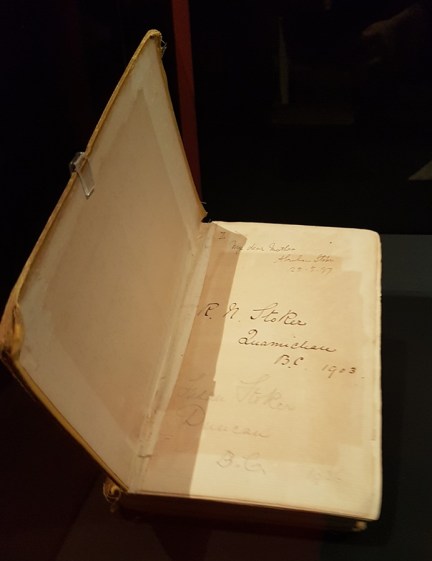 My dear Mother
Abraham Stoker
R. N. Stoker
Quamichan
B.C. 1903.
Stoker
Duncan
B.C.